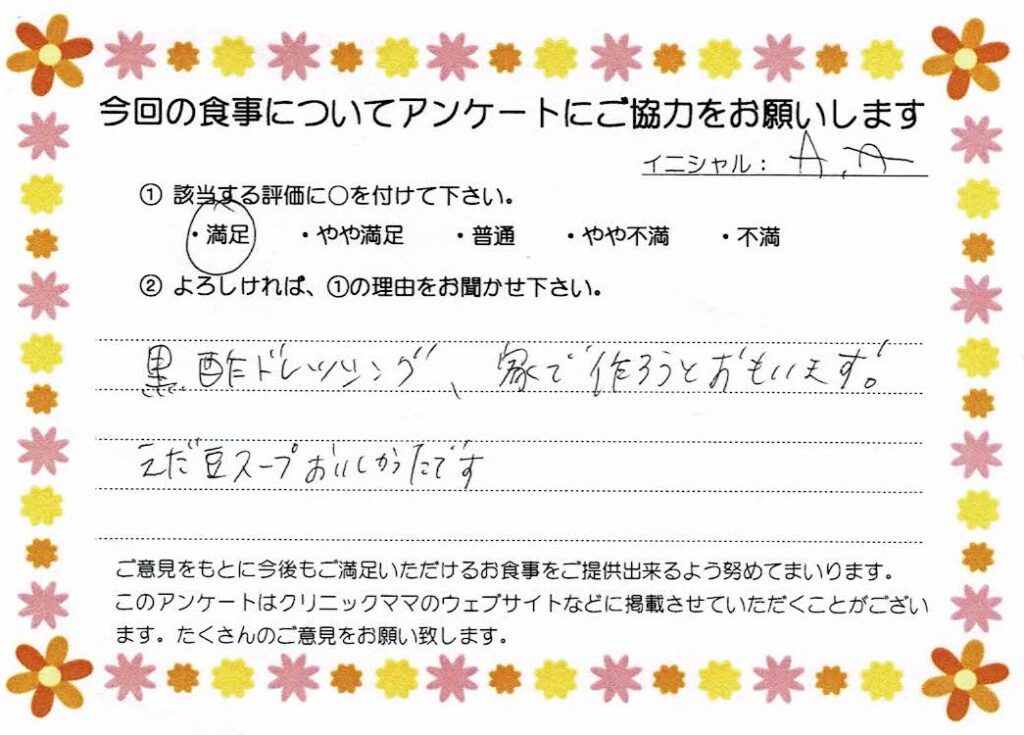 今回の食事についてアンケートにご協力をお願いします
イニシャル： A.A
① 該当する評価に○を付けて下さい。
・満足 ・やや満足 ・普通 ・やや不満 ・不満
② よろしければ、①の理由をお聞かせ下さい。
黒酢ドレッシング、家で作ろうとおもいます。
えだ豆スープおいしかったです
ご意見をもとに今後もご満足いただけるお食事をご提供出来るよう努めてまいります。
このアンケートはクリニックママのウェブサイトなどに掲載させていただくことがござい
ます。たくさんのご意見をお願い致します。